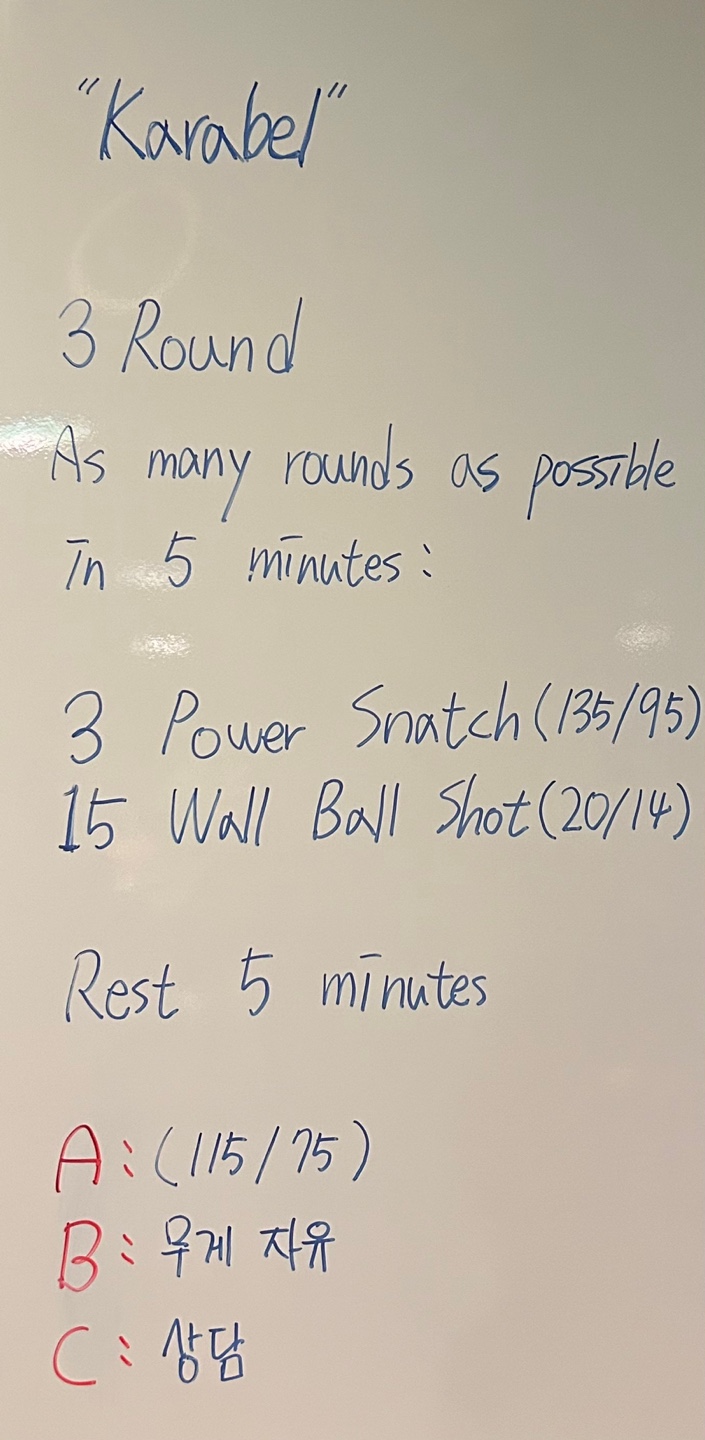 "Karabel"
3 Round
As many rounds as possible
in 5 minutes:
3 Power Snatch (135/95)
15 Wall Ball Shot (20/14)
Rest 5 minutes
A: (115/75)
B: 무게 자유
C: 상담